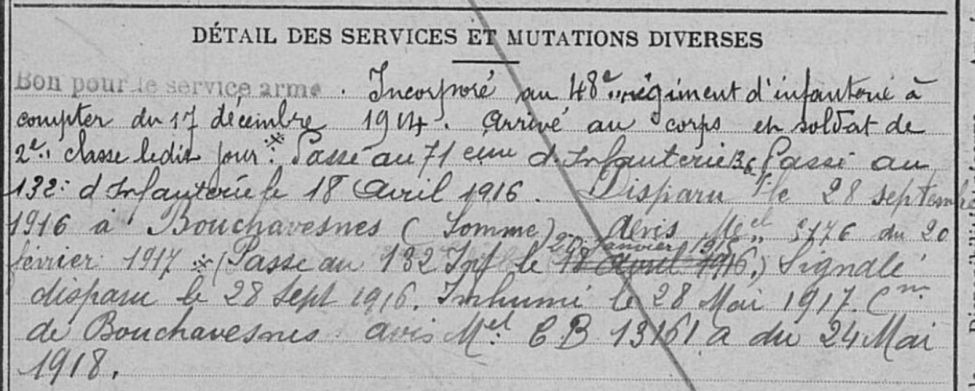 DÉTAIL DES SERVICES ET MUTATIONS DIVERSES
Bon pour le service armé. Incorporé au 48e régiment d'infanterie à
compter du 17 décembre 1914. Arrivé au corps et soldat de
2e classe ledit jour. * Passé au 71 eme d'Infanterie Passé au
132e d'Infanterie le 18 Avril 1916. Disparu le 28 septembre
1916 à Bouchavesnes (Somme) Avis Mel S176 du 20
20 janvier 1916
février 1917 * (Passé au 132 Inf le 18 Avril 1916.) Signalé
disparu le 28 Sept 1916. Inhumé le 28 Mai 1917. Cm
de Bouchavesnes avis Mel CB 13161 a du 24 Mai
1918.